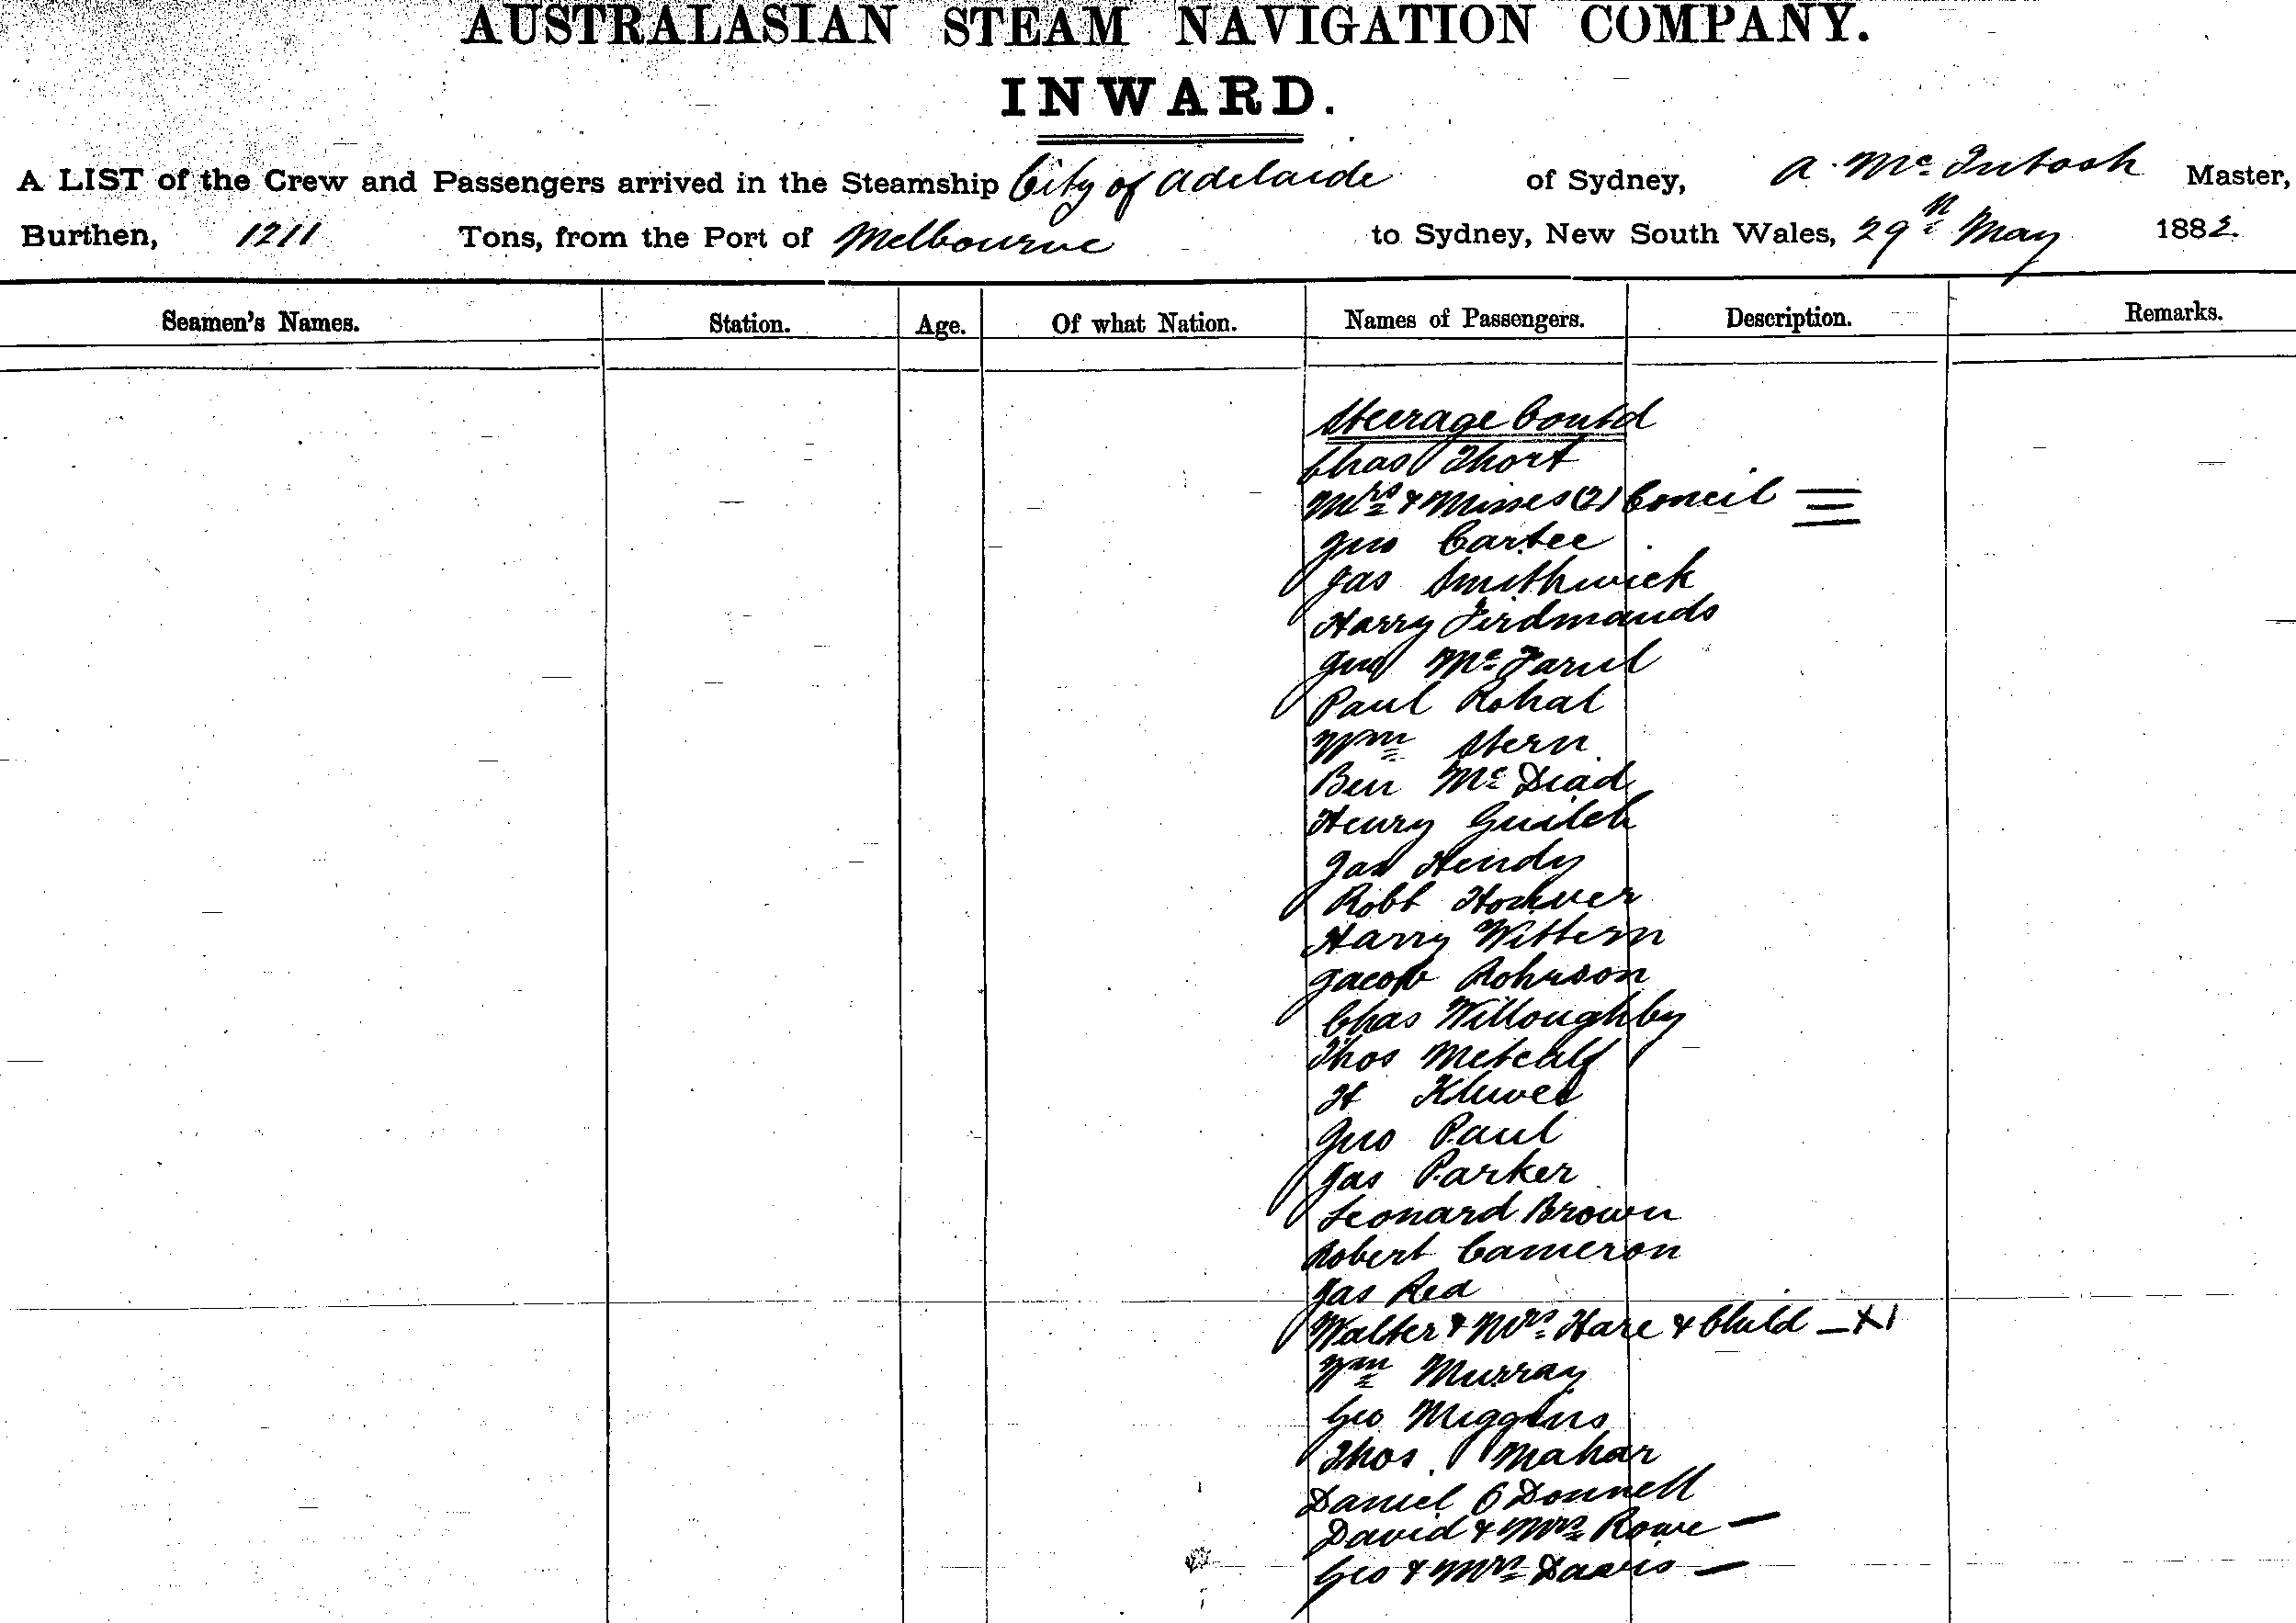 AUSTRALASIAN STEAM NAVIGATION COMPANY.
INWARD.
A LIST of the Crew and Passengers arrived in the Steamship City of Adelaide of Sydney, A. Mc. Intosh Master,
Burthen, 1211 Tons, from the Port of Melbourne to Sydney, New South Wales, 29th May 1882.
Seamen's Names. Station. Age. Of what Nation. Names of Passengers. Description. Remarks.
Steerage Contd
Chas Short
Mrs & Misses (2) Concil
Jno Cartee
Jas Smithwick
Harry
Jno
Paul Rohal
Wm Stern
Ben Mc Diad
Henry
Jas Hendy
Robt
Harry Wittern
Jacob Rohrson
Chas Willoughby
Thos Metcalf
H
Jno Paul
Jas Parker
Leonard Brown
Robert Cameron
Jas Red
Walter & Mrs Hare & Child
Wm Murray
Geo Miggins
Thos. Mahar
Daniel O Donnell
David & Mrs Rowe
Geo & Mrs Davis